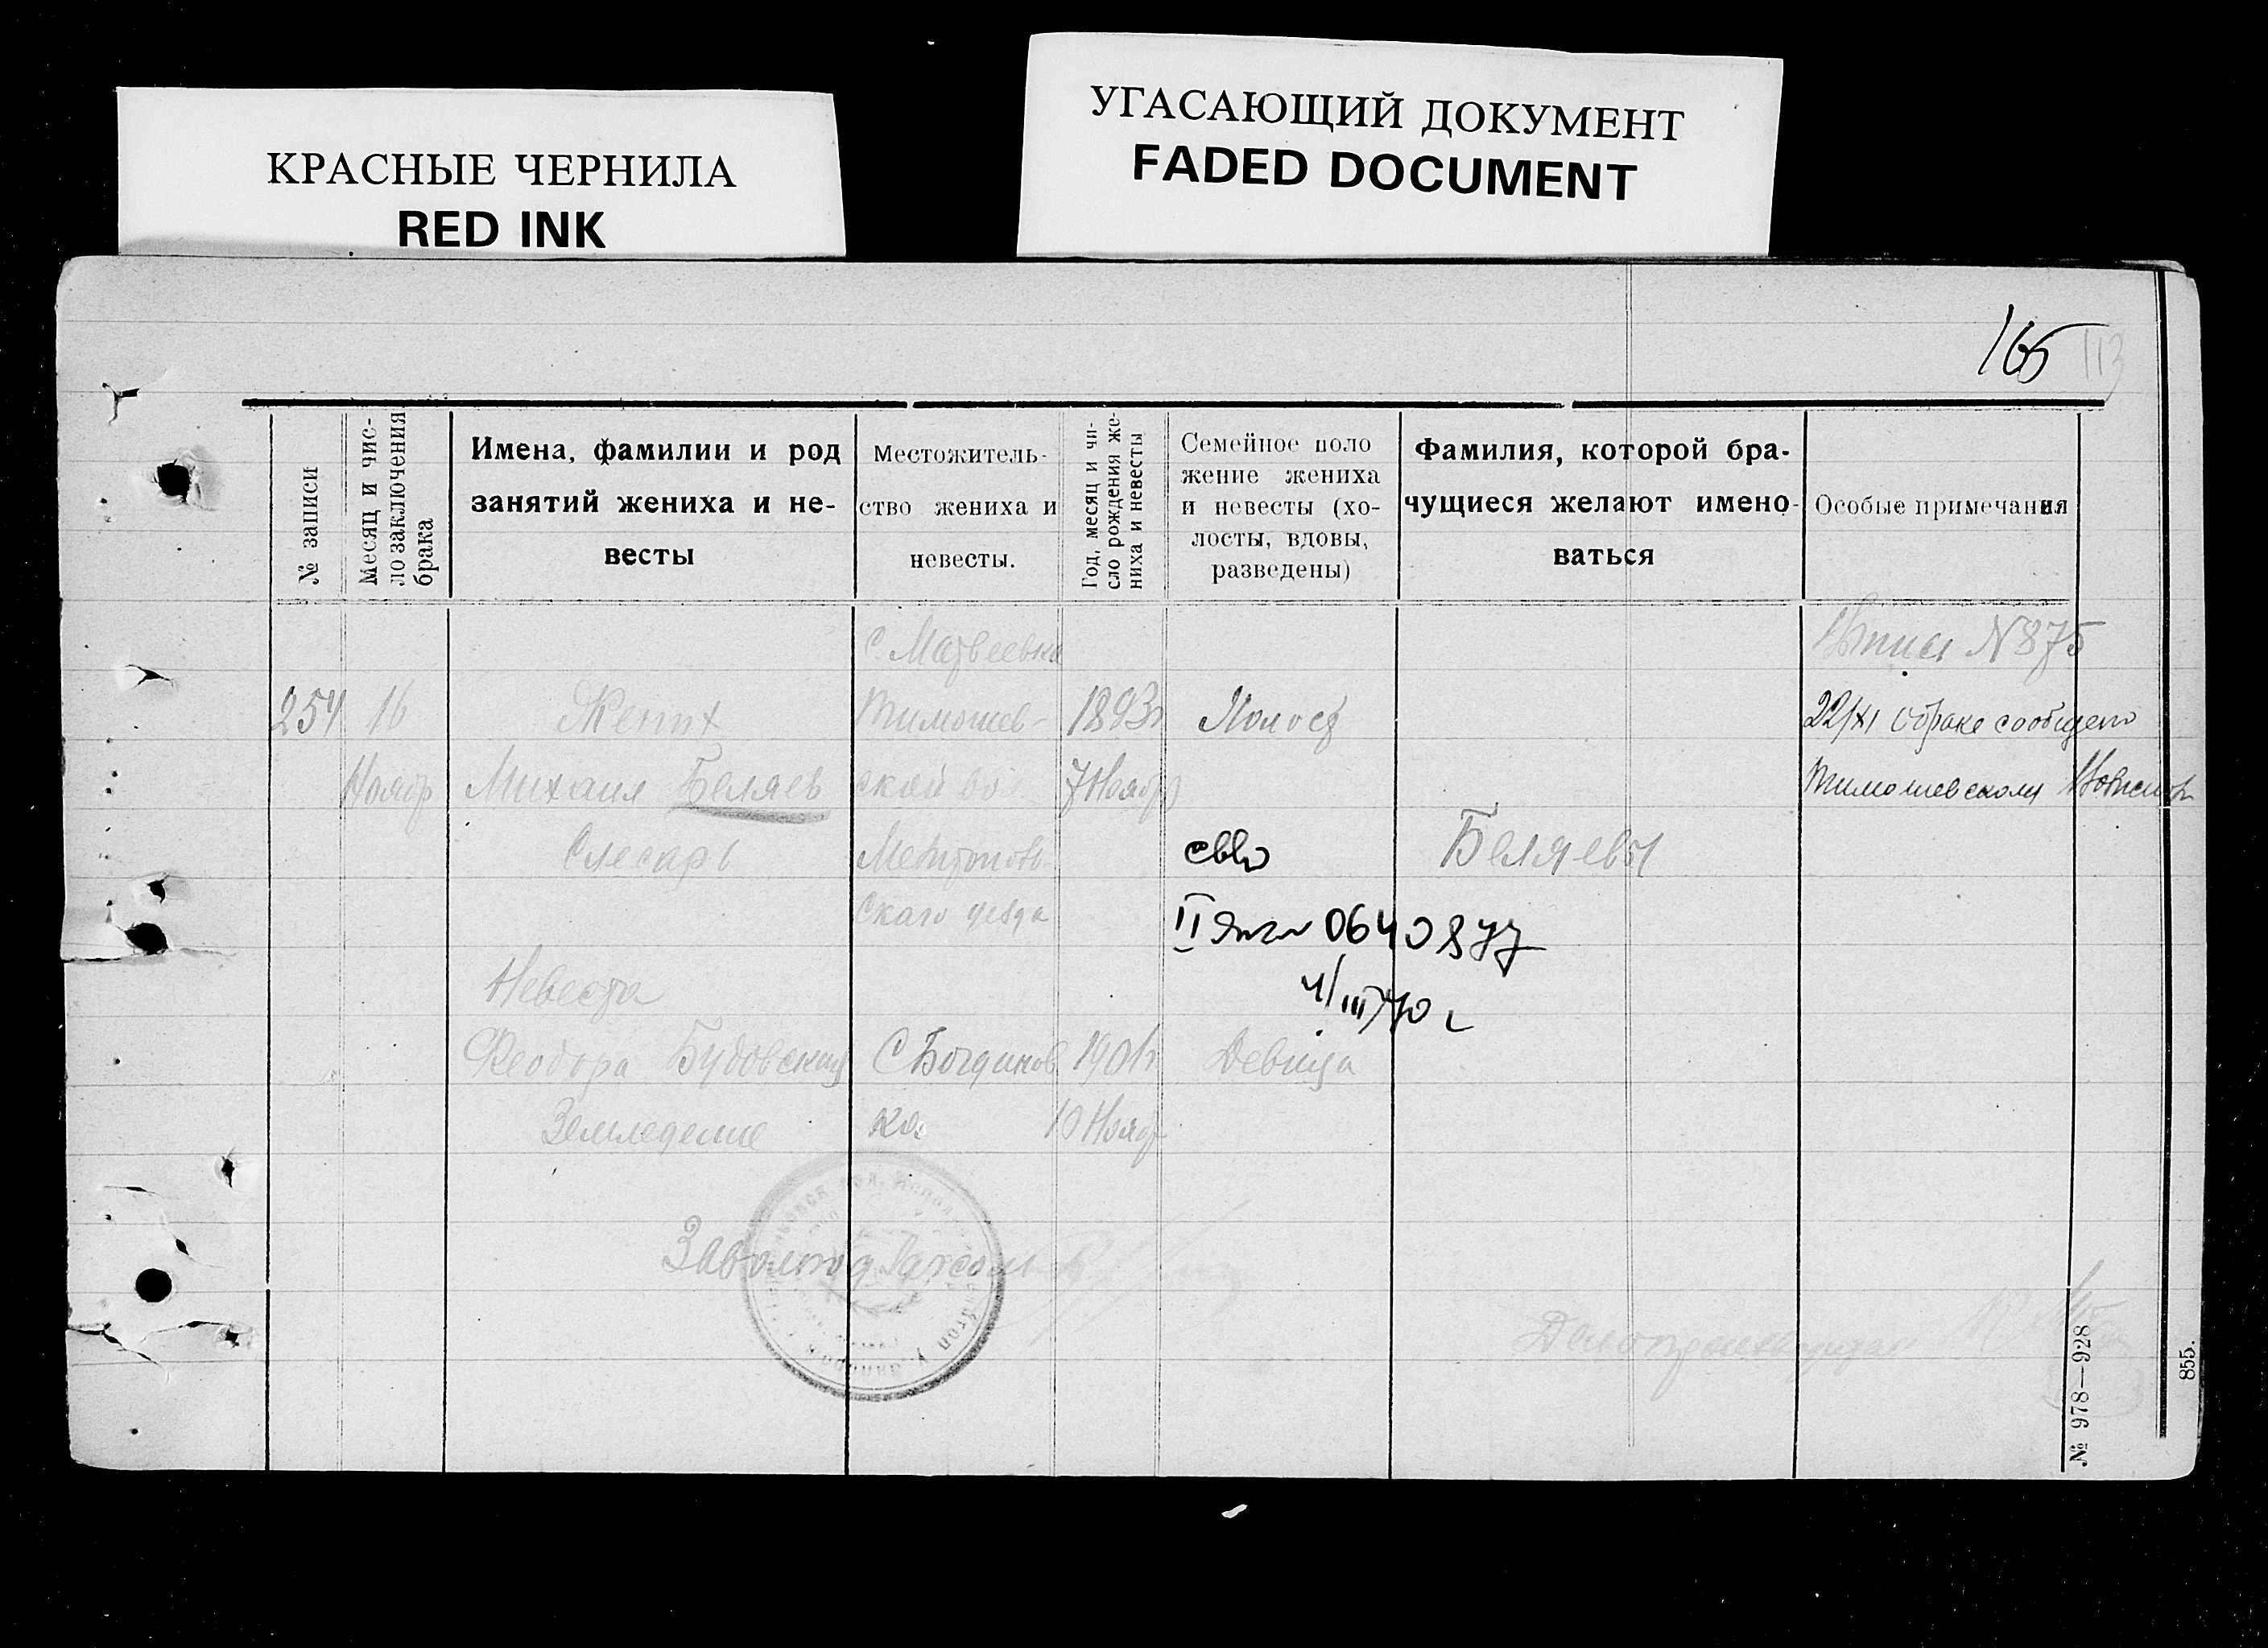 КРАСНЫЕ ЧЕРНИЛА
RED INK
УГАСАЮЩИЙ ДОКУМЕНТ
FADED DOCUMENT
165 113
№ записи
Месяц и чис-
ло заключения
брака
Имена, фамилии и род
занятий жениха и не-
весты
Местожитель-
ство жениха и
невесты.
Год, месяц и чи-
сло рождения же-
ниха и невесты
Семейное поло
жение жениха
и невесты (хо-
лосты, вдовы,
разведены)
Фамилия, которой бра-
чущиеся желают имено-
ваться
Особые примечания
254
16
Ноябр
Жених
Михаил Беляев
Слесарь
с. Матвеевка
Тимошев-
ской вол
Мелитополь-
скаго уезда
1893г
7 Ноябр
Холост
Беляевы
№ 875
22/XI о браке сообщено
Тимошевскому
II 0640877
4/III 70 г
Невеста
Феодора Будовская
Земледелие
С Богданов
ка
1901г
10 Ноябр
Девица
Делопроизводитель
№ 978—928
855.